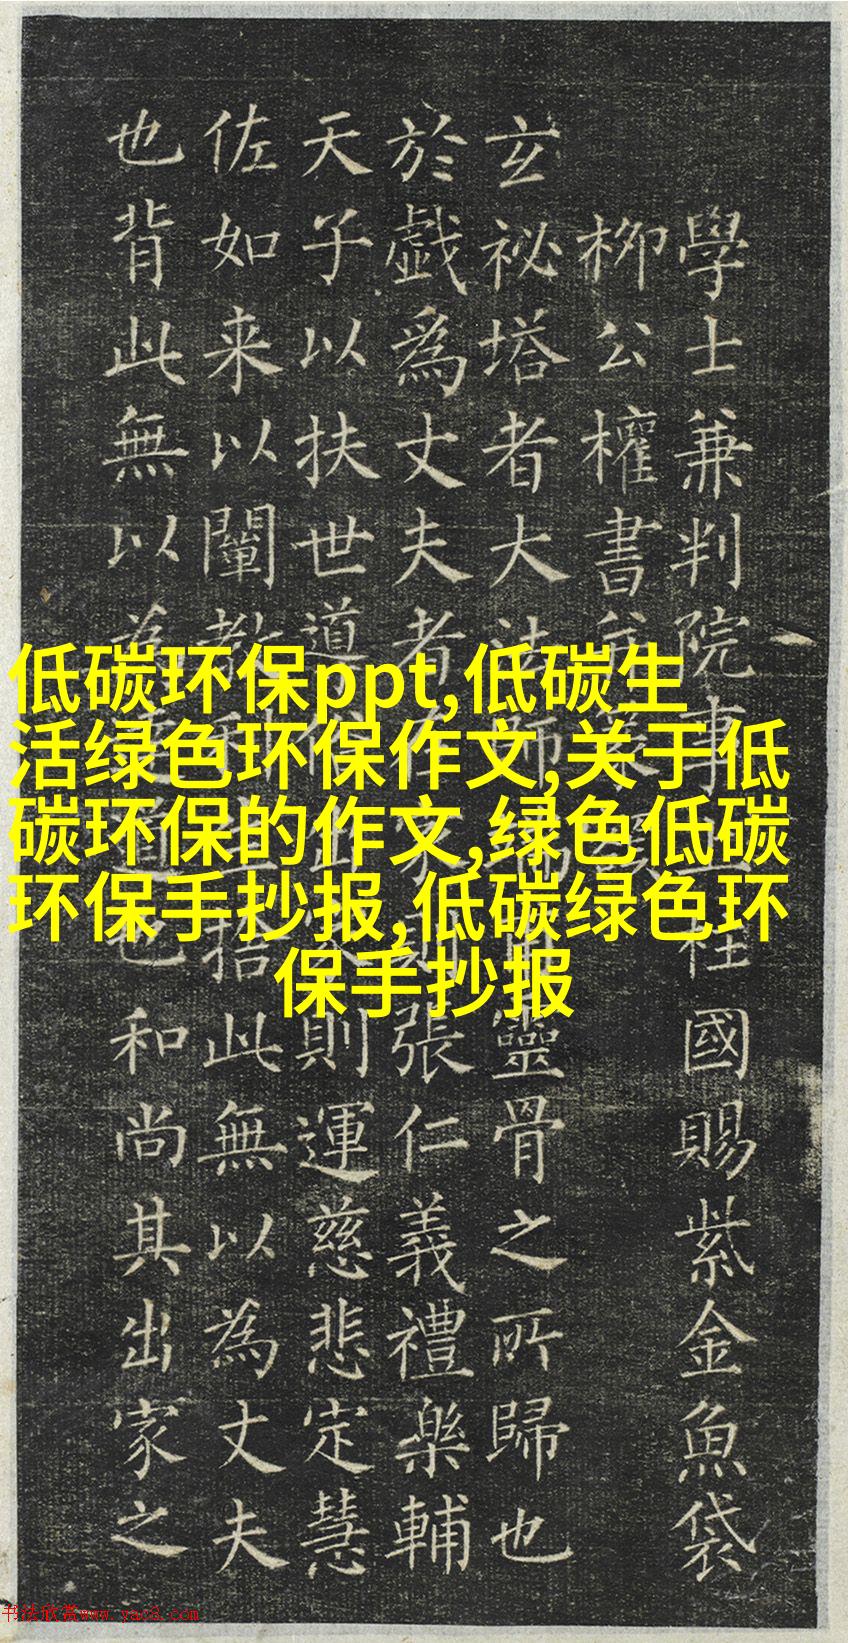 學士兼判院事柱國賜紫金魚袋
柳公權書
玄祕塔者大法師靈骨之所歸也
於戲爲丈夫者在家則張仁義禮樂輔
天子以扶世道則運慈悲定慧
佐如来以闡教利捨此無以為丈夫
也背此無以為道也和尚其出家之
低碳环保ppt,低碳生
活绿色环保作文,关于低
碳环保的作文,绿色低碳
环保手抄报,低碳绿色环
保手抄报
书法欣赏www.yac8.com